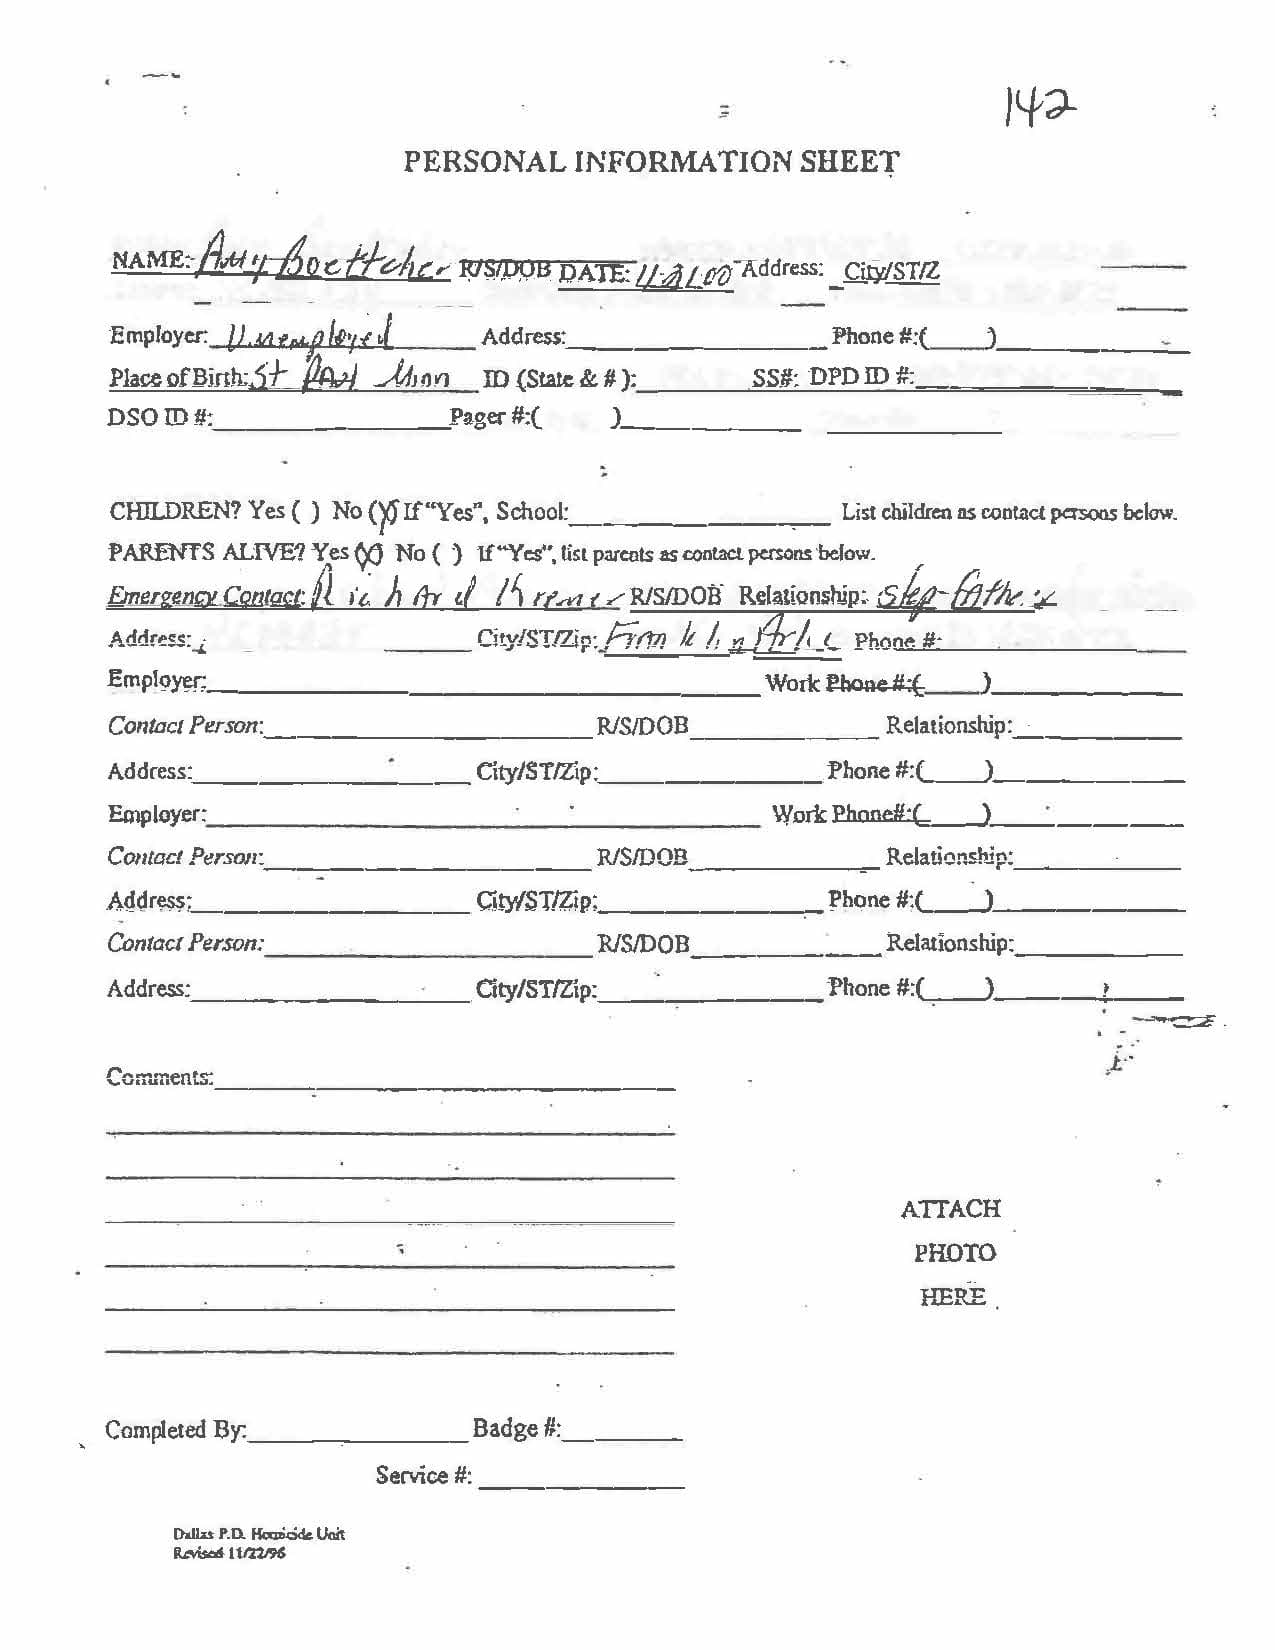 142
PERSONAL INFORMATION SHEET
NAME: Amy Boettcher R/S/DOB DATE: 11-21-00 Address: City/ST/Z
Employer: Unemployed Address: Phone #:( )
Place of Birth: St Paul Minn ID (State & # ): SS#: DPD ID #:
DSO ID #: Pager #:( )
CHILDREN? Yes ( ) No (X) If "Yes", School: List children as contact persons below.
PARENTS ALIVE? Yes (X) No ( ) If "Yes", list parents as contact persons below.
Emergency Contact: Richard Kremer R/S/DOB Relationship: Step-father
Address: City/ST/Zip: Franklin Phone #:
Employer: Work Phone #:( )
Contact Person: R/S/DOB Relationship:
Address: City/ST/Zip: Phone #:( )
Employer: Work Phone#:( )
Contact Person: R/S/DOB Relationship:
Address: City/ST/Zip: Phone #:( )
Contact Person: R/S/DOB Relationship:
Address: City/ST/Zip: Phone #:( )
Comments:
ATTACH
PHOTO
HERE
Completed By: Badge #:
Service #:
Dallas P.D. Homicide Unit
Revised 11/22/96